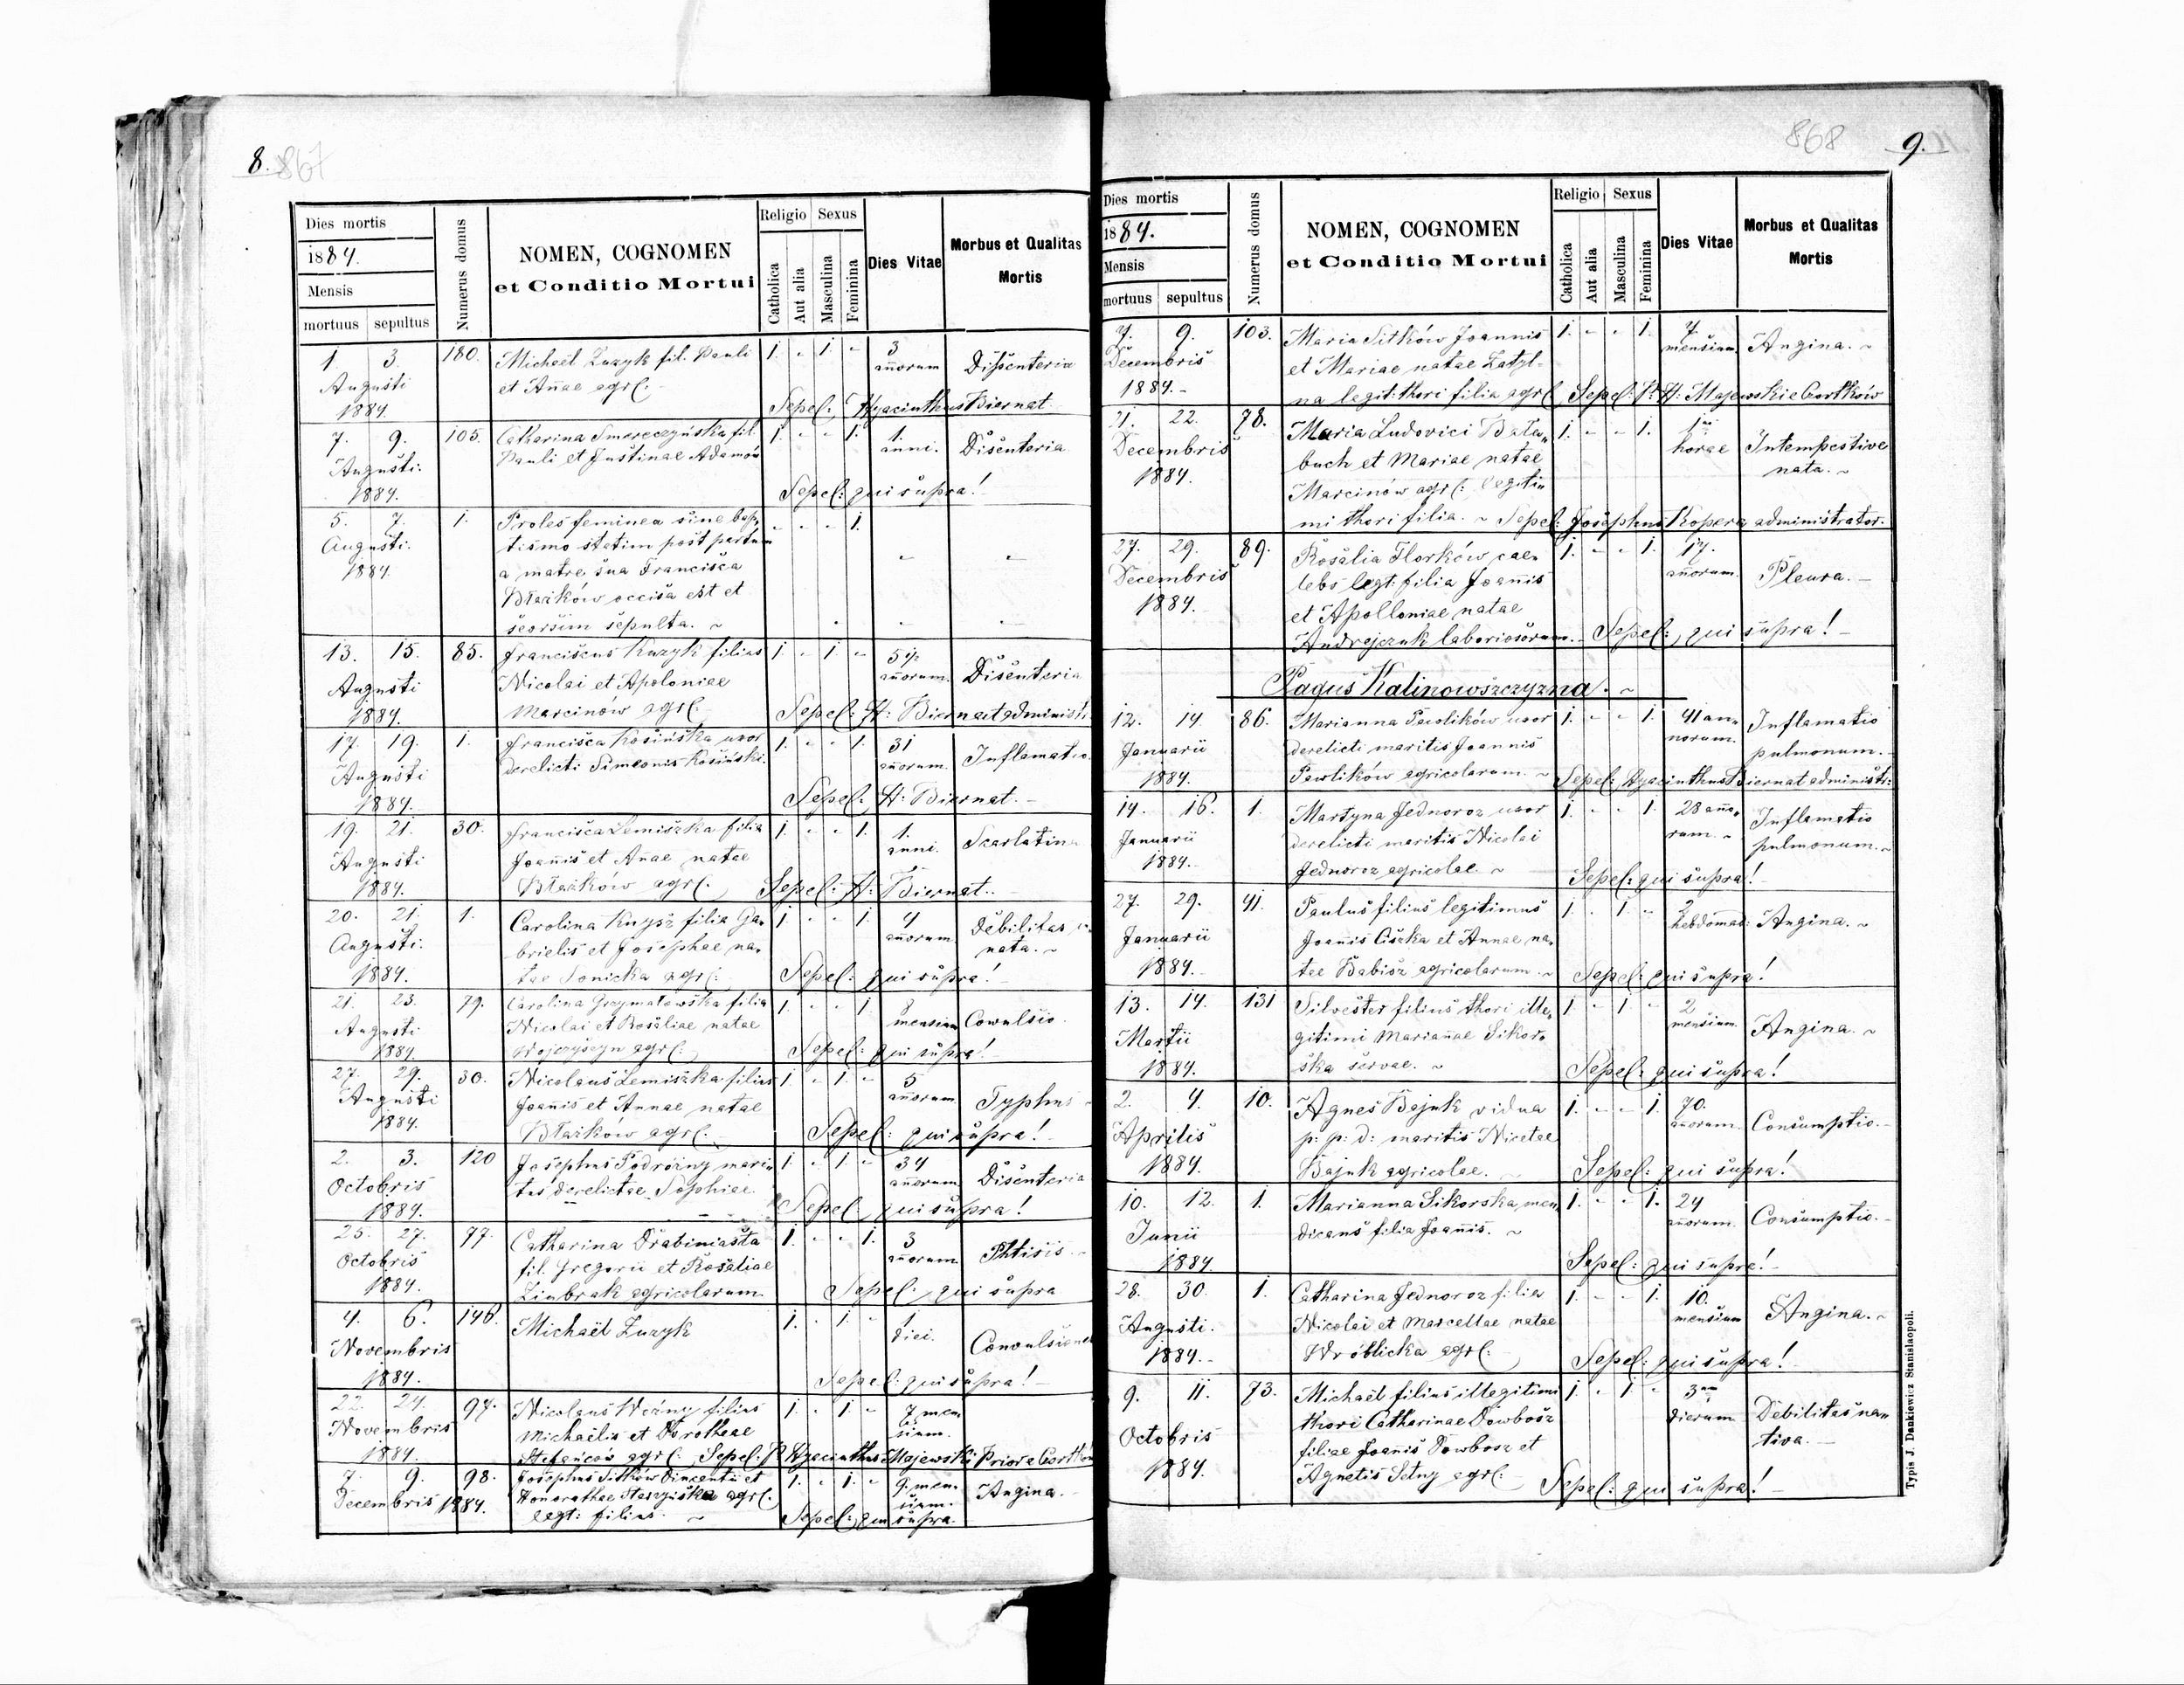 8. 867
Dies mortis
1884.
Mensis
mortuus sepultus
Numerus domus
NOMEN, COGNOMEN
et Conditio Mortui
Religio Sexus
Catholica
Aut alia
Masculina
Feminina
Dies Vitae
Morbus et Qualitas
Mortis
1. 3 180. Michaël Zuzyk fil. Pauli 1. - 1. - 3 Dißenteria
Augusti et Añae agrl: añorum
1884. Sepel: Hyacinthus Biernat
7. 9. 105. Catharina Smereczyńska fil. 1. - - 1. 1. Disenteria
Augusti. Pauli et Justinae Adamów anni.
1884. Sepel: qui supra!
5. 7. 1. Proles feminea sine bap- - - - 1.
Augusti. tismo statim post partum
1884. a matre sua Francisca
Błażków occisa est et
seorsim sepulta. ~
13. 15. 85. Franciscus Kuzyk filius 1 - 1 - 5½ Disenteria
Augusti Nicolai et Apoloniae añorum.
1884. Marcinow agrl: Sepel: H: Biernat administ.
17. 19. 1. Francisca Kosińska uxor 1. - - 1. 31 Inflamatio
Augusti derelicti Simeonis Kosiński. añorum.
1884. Sepel: H: Biernat. -
19. 21. 30. Francisca Lemiszka filia 1. - - 1. 1. Scarlatina
Augusti Joañis et Añae natae anni.
1884. Błażków agrl: Sepel: H: Biernat. -
20. 21. 1. Carolina Kuysz filia Ga- 1. - - 1. 4 Debilitas
Augusti. brielis et Josephae na- añorum. nata. ~
1884. tae Sonicka agrl: Sepel: qui supra!
21. 23. 79. Carolina Grzymałowska filia 1. - - 1. 8 Cowulsio.
Augusti Nicolai et Rosaliae natae mensium
1884. Wojczyszyn agrl: Sepel: qui supra!
27. 29. 30. Nicolaus Lemiszka filius 1 - 1. - 5 Typhus
Augusti Joañis et Annae natae añorum.
1884. Błażków agrl: Sepel: qui supra!
2. 3. 120 Josephus Podróżny mari- 1. - 1. - 34 Disenteria
Octobris tus derelictae Sophiae añorum
1884. Sepel: qui supra!
25. 27. 77. Catharina Drabiniasta 1. - - 1. 3 Phtisis
Octobris fil. Gregorii et Rosaliae añorum
1884. Zimbrak agricolarum Sepel: qui supra
4. 6. 146. Michaël Zuzyk 1. - 1. - 1 Convulsiones
Novembris diei.
1884. Sepel: qui supra!
22. 24. 97. Nicolaus Woźny filius 1. - 1. - 7 men-
Novembris Michaëlis et Dorotheae sium.
1884. Stefańców agrl: Sepel: P. Hyacinthus Majewski Prior e Czortków
7. 9. 98. Josephus Sitków Vincentii et 1. - 1. - 9. men- Angina.
Decembris 1884. Honorathae agrl: sium.
legt: filius. ~ Sepel: qui supra.
868 9.
Dies mortis
1884.
Mensis
mortuus sepultus
Numerus domus
NOMEN, COGNOMEN
et Conditio Mortui
Religio Sexus
Catholica
Aut alia
Masculina
Feminina
Dies Vitae
Morbus et Qualitas
Mortis
7. 9. 103. Maria Sitków Joannis 1. - - 1. 7 Angina. ~
Decembris et Mariae natae Zatyl- mensium.
1884. - na legit: thori filia agrl: Sepel: P. H: Majewski e Czortków
21. 22. 78. Maria Ludovici 1. - - 1. 1 Intempestive
Decembris buch et Mariae natae horae nata. ~
1884. Marcinów agrl: legiti-
mi thori filia. ~ Sepel: Josephus Kopera administrator.
27. 29. 89. Rosalia Florków cae- 1. - - 1. 17. Pleura. -
Decembris lebs legt: filia Joañis añorum.
1884. et Apolloniae natae
Andrejczuk laboriosorum. - Sepel: qui supra! -
Pagus Kalinowszczyzna. ~
12. 14. 86. Marianna Pawlików uxor 1. - - 1. 41 an- Inflamatio
Januarii derelicti maritis Joannis norum. pulmonum. -
1884. Pawlików agricolarum. ~ Sepel: Hyacinthus Biernat administr:
14. 16. 1. Martyna Jednoroz uxor 1. - - 1. 28 año- Inflamatio
Januarii derelicti maritis Nicolai rum. ~ pulmonum. ~
1884. - Jednoroz agricolae. ~ Sepel: qui supra! -
27. 29. 41. Paulus filius legitimus 1. - 1. - 2 Angina. ~
Januarii Joañis Ciszka et Annae na- hebdomad:
1884. - tae Babisz agricolarum. ~ Sepel: qui supra!
13. 14. 131 Silvester filius thori ille- 1. - 1. - 2 Angina. ~
Martii gitimi Mariañae Sikor- mensium.
1884. ska servae. ~ Sepel: qui supra!
2. 4. 10. Agnes Bajuk vidua 1. - - 1. 70. Consumptio. -
Aprilis p: p: d: maritis Nicetae añorum.
1884. Bajuk agricolae. ~ Sepel: qui supra!
10. 12. 1. Marianna Sikorska men- 1. - - 1. 24 Consumptio. -
Junii dicans filia Joañis. ~ añorum.
1884 Sepel: qui supra! -
28. 30. 1. Catharina Jednoroz filia 1. - - 1. 10. Angina. ~
Augusti. Nicolai et Marcellae natae mensium
1884. - Wróblicka agrl: Sepel: qui supra! -
9. 11. 73. Michaël filius illegitimi 1. - 1. - 3 Debilitas na-
Octobris thori Catharinae Dowbosz dierum tiva. -
1884. filiae Joañis Dowbosz et
Agnetis Setny agrl: - Sepel: qui supra! -
Typis J. Dankiewicz Stanislaopoli.